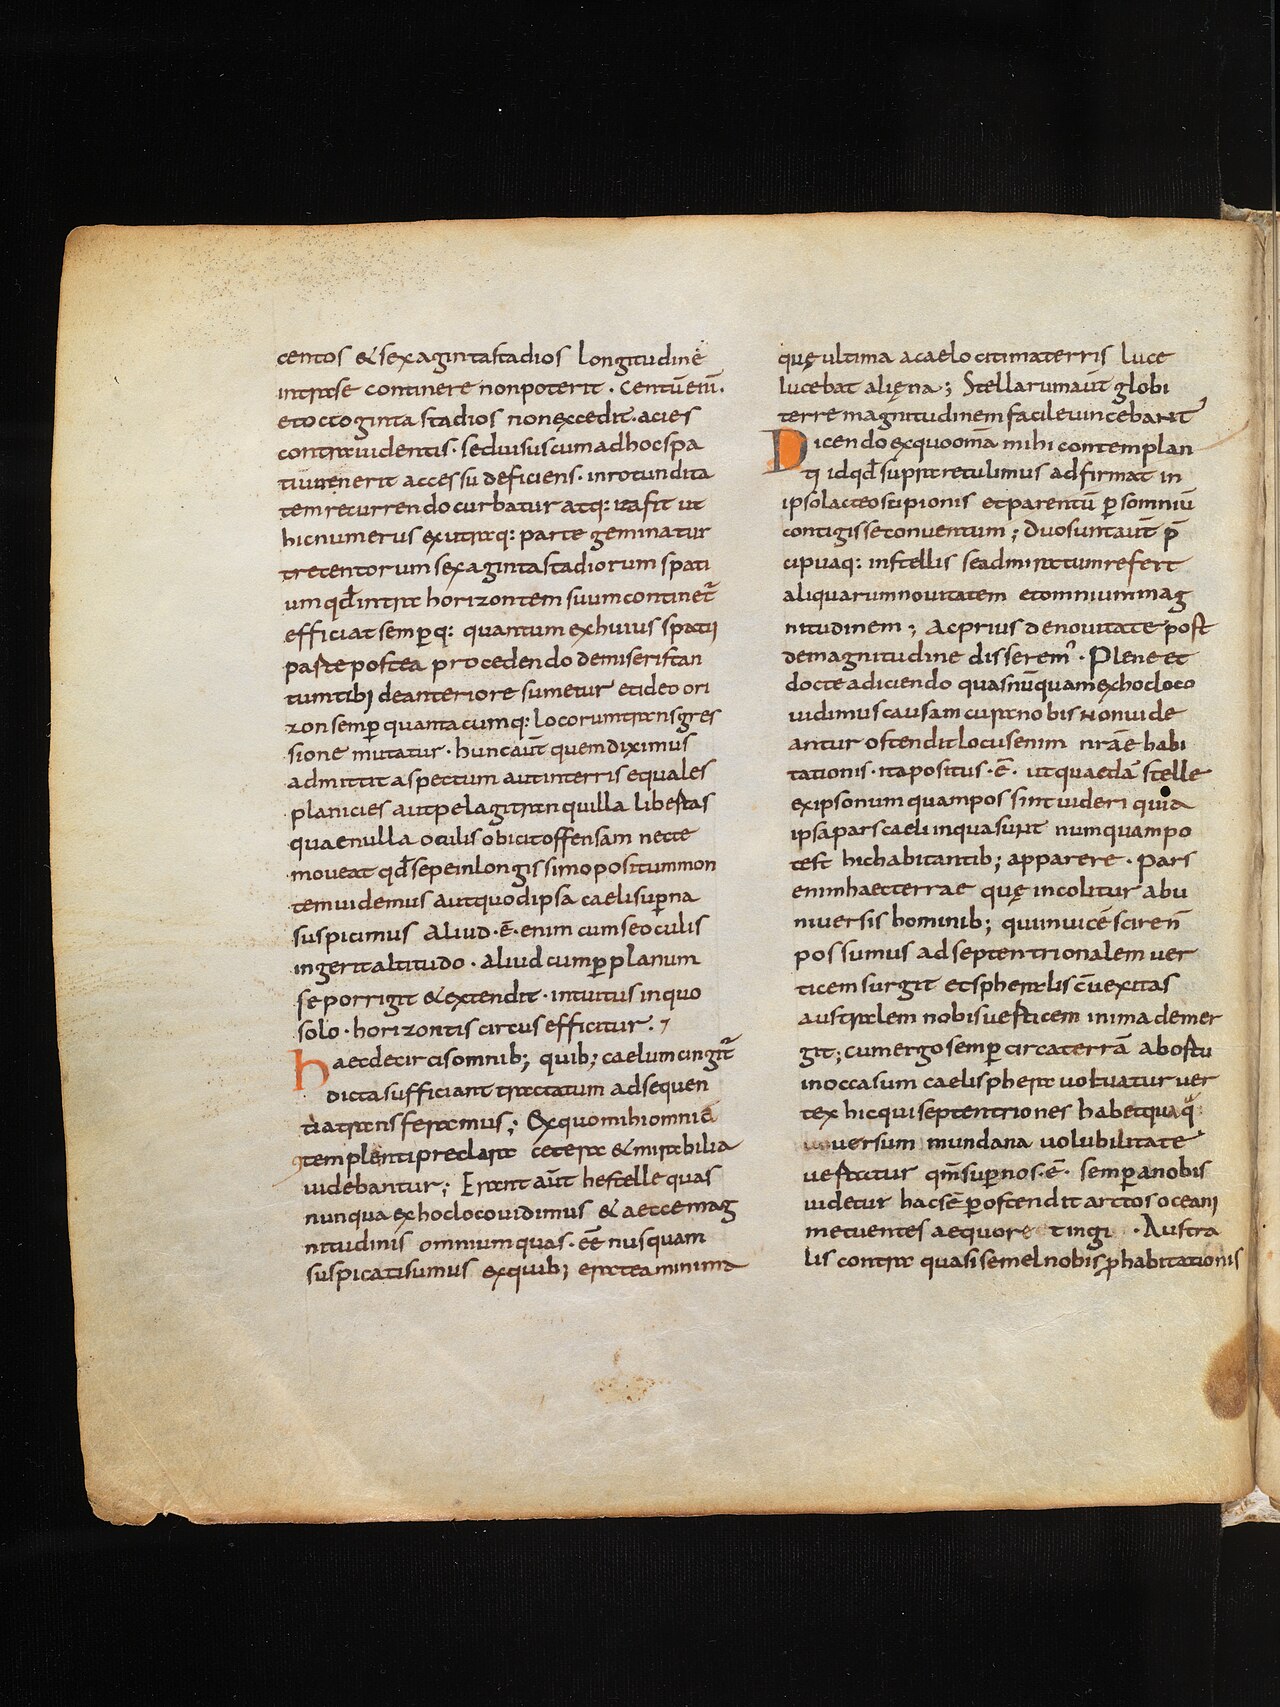 centos & sexagintastadios longitudinē
intrase continere nonpoterit · centū eni͂ ·
etoctoginta stadios nonexcedit · acies
contra uidentis · seduisus cumadhoc spa
tiū uenerit accessu deficiens · inrotundita
tem recurrendo curbatur atq: itafit ut
hicnumerus exutraq: parte geminatur
trecentorum sexagintastadiorum spati
um qđ intra horizontem suum continet̃
efficiat semꝑq: quantum exhuius spatii
parte postea procedendo demiseris tan
tumtibi deanteriore sumetur etideo ori
zon semꝑ quantacumq: locorum transgres
sione mutatur · huncaūt quem diximus
admittit aspectum autinterris equales
planicies autpelagi tranquilla libertas
quaenulla oculis obicit offensam necte
moueat qđ sepe inlongissimo positum mon
tem uidemus autquod ipsa caeli suꝑna
suspicimus Aliud · ē · enim cum se oculis
ingerit altitudo · aliud cum ꝑ planum
se porrigit & extendit · intuitus inquo
solo · horizontis circus efficitur · ⁊
haec decircis omnib; quib; caelum cingit̃
dicta sufficiant tractatum adsequen
tia transferamus ; Exquo mihi omnia
ꝯtemplanti preclara cetera & mirabilia
uidebantur ; Erant aūt hestelle quas
nunqua exhoc loco uidimus & aetce mag
nitudinis omnium quas · ēē nusquam
suspicati sumus exquib; erat ea minima
quę ultima acaelo citima terris luce
lucebat aliena ; Stellarum aūt globi
terre magnitudinem facile uincebant
Dicendo exquo om̄a mihi contemplan
ti idqđ supra retulimus adfirmat in
ipso lacteo scipionis etparentū ꝑ somniū
contigisse conuentum ; duo sunt aūt p̄
cipuaq: instellis se admiratum refert
aliquarum nouitatem etomnium mag
nitudinem ; Acprius denouitate post
demagnitudine disserem᾽ · Plene et
docte adiciendo quas nūquam exhoc loco
uidimus causam cur a nobis non uide
antur ostendit locus enim nrāe habi
tationis · ita positus · ē · ut quaedā stelle
exipso numquam possint uideri quia
ipsa pars caeli inqua sunt numquam po
test hic habitantib; apparere · Pars
enim haec terrae quę incolitur abu
niuersis hominib; qui inuicē scire n̄
possumus ad septentrionalem uer
ticem surgit et spheralis c̄uexitas
australem nobis uerticem inima demer
git ; cum ergo semꝑ circa terrā abortu
inoccasum caeli sphera uoluatur uer
tex hic qui septentriones habet quaq̄
uersum mundana uolubilitate
uertatur qm̄ suꝑ nos · ē · semꝑ anobis
uidetur hac sēꝑ ostendit arctos oceani
metuentes aequore tingi · Austra
lis contra quasi semel nobis ꝓ habitationis